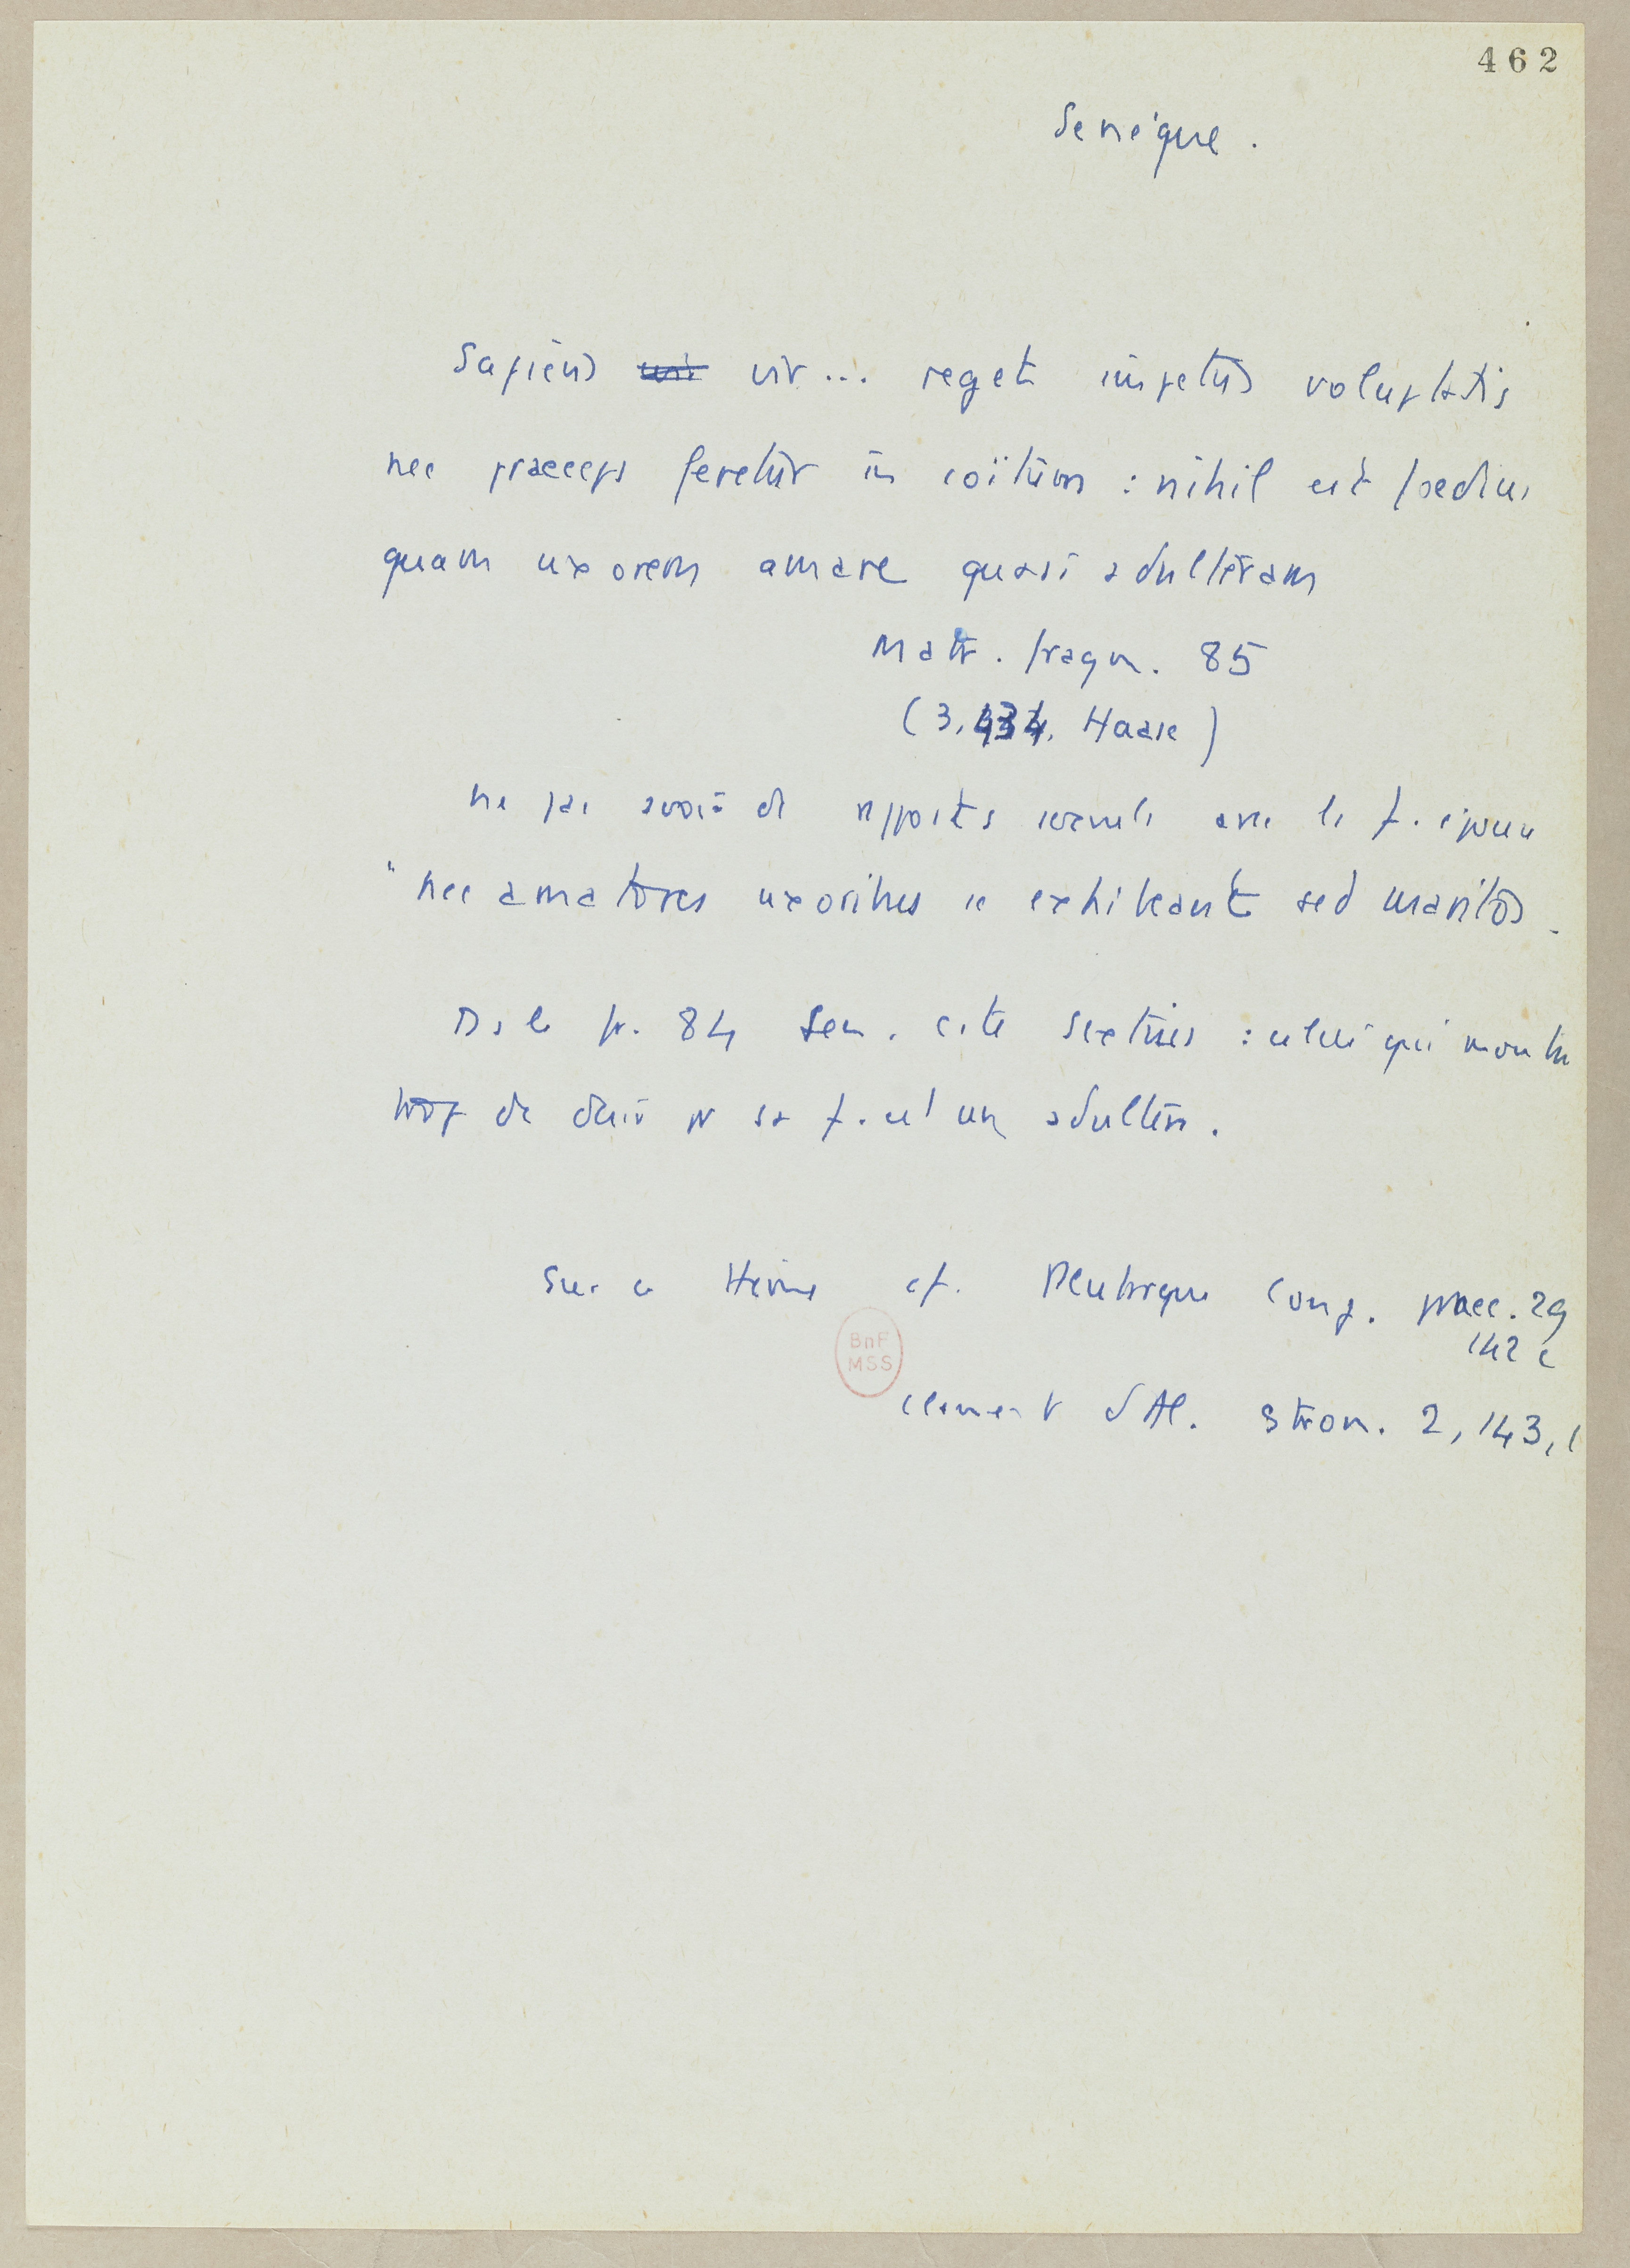 462
Senèque.
Sapiens vir... reget impetus voluptatis
nec praeceps feretur in coïtum : nihil est foedius
quam uxorem amare quasi adulteram
Matr. fragm. 85
(3, 434, Haase)
ne pas avoir de rapports sexuels avec la f. épouse
"nec amatores uxoribus se exhibeant sed maritos.
Ds le fr. 84 Sen. cite Sextius : celui qui montre
trop de désir pr sa f. est un adultère.
Sur ce thème cf. Plutarque Conj. praec. 29
142 c
Clément d'Al. Strom. 2, 143, 1
BnF
MSS